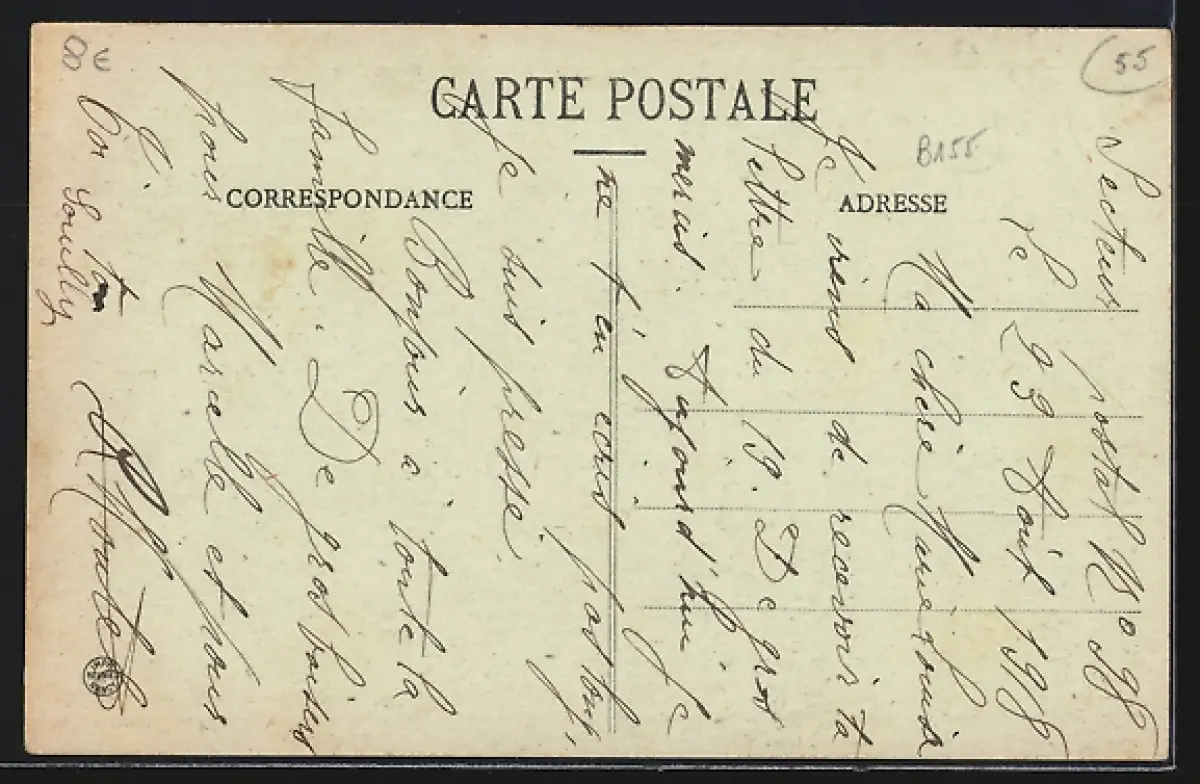 CARTE POSTALE
CORRESPONDANCE
ADRESSE
8€
55
B155
Secteur postal No 98
Le 29 Août 1918
Ma chère Marie Louise
Je viens de recevoir ta
lettre du 19. De gros
mercis. Aujourd'hui je
ne t'en écris pas long,
je suis pressé.
Bonjour à toute la
famille. De gros baisers
pour Marcelle et pour
Toi
Souilly